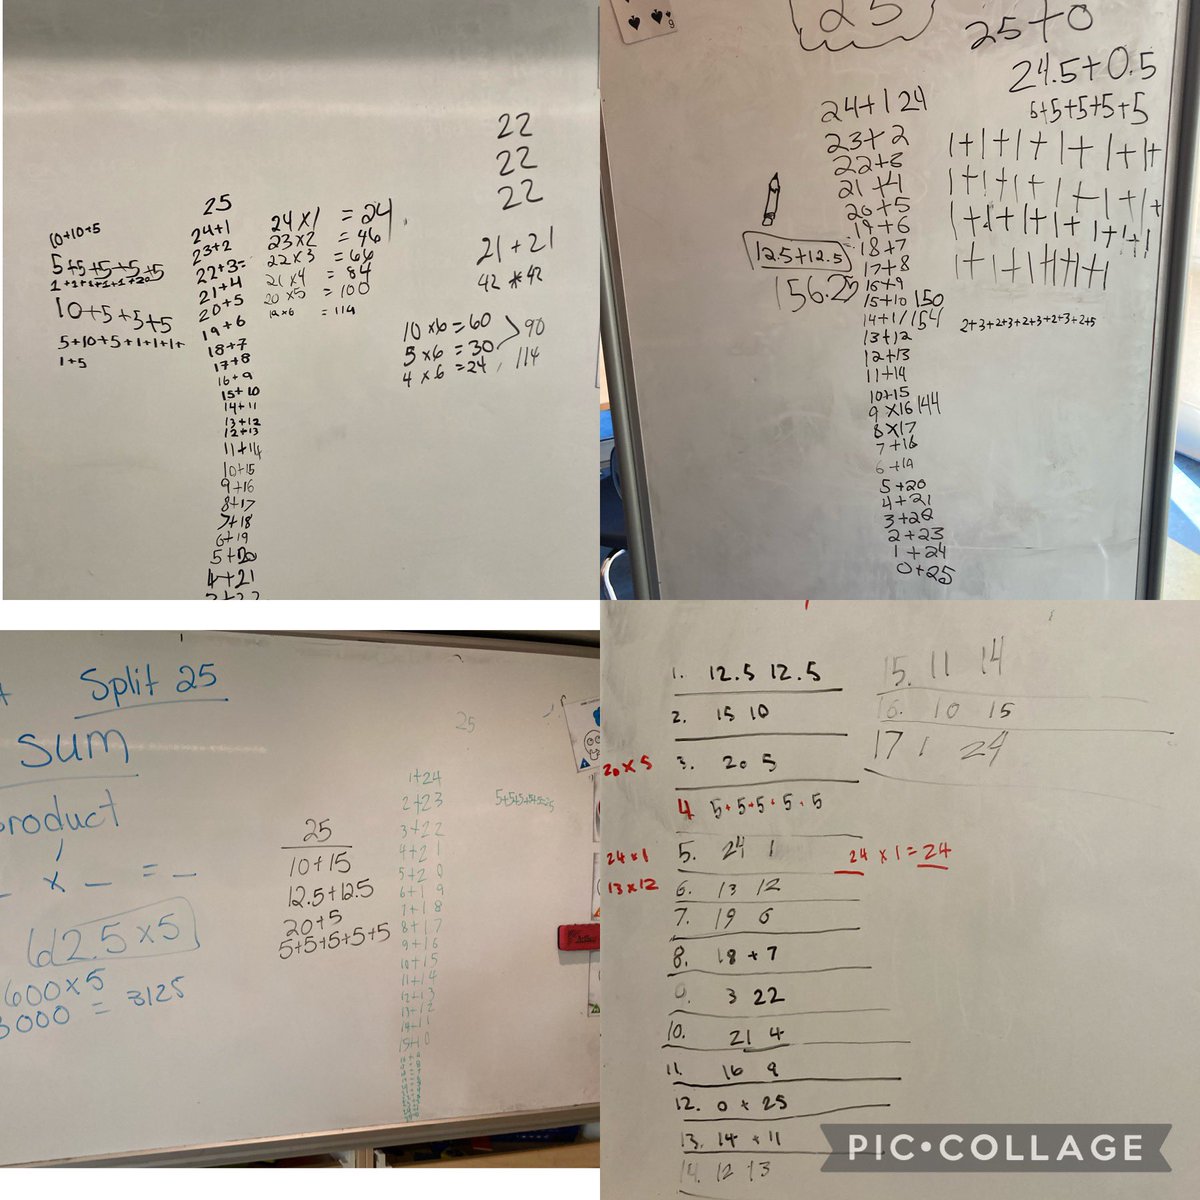 10+10+5
5+5+5+5+5
10+5+5+5
5+10+5+1+1+1+
1+5
25
24+1
23+2
22+3=
21+4
20+5
19+6
18+7
17+8
16+9
15+10
14+11
13+12
12+13
11+14
10+15
9+16
8+17
7+18
6+19
5+20
4+21
24×1 = 24
23×2 = 46
22×3 = 66
21×4 = 84
20×5 = 100
19×6 = 114
22
22
22
21+21
10×6=60
5×6=30
4×6=24
90
114
25
25+0
24.5+0.5
5+5+5+5+5
24+1 24
23+2
22+3
21+4
20+5
19+6
18+7
17+8
16+9
15+10 150
14+11 154
13+12
12+13
11+14
10+15
9×16 144
8×17
7+18
6+19
5+20
4+21
2+23
1+24
0+25
12.5+12.5
156.25
1+1+1+1+1+1+
2+3+2+3+2+3+2+3+2+5
Split 25
Sum
product
_ × _ = _
62.5×5
600×5
3000 = 3125
25
10+15
12.5+12.5
20+5
5+5+5+5+5
25
1+24
2+23
3+22
4+21
5+20
6+19
7+18
8+17
9+16
10+15
11+14
12+13
13+12
14+11
15+10
5+5+5+5+5=25
1. 12.5 12.5
2. 15 10
20×5 3. 20 5
4 5+5+5+5+5
24×1 5. 24 1 24×1=24
13×12 6. 13 12
7. 19 6
8. 18+7
9. 3 22
10. 21 4
11. 16 9
12. 0+25
13. 14+11
14. 12 13
15. 11 14
16. 10 15
17 1 24
PIC•COLLAGE